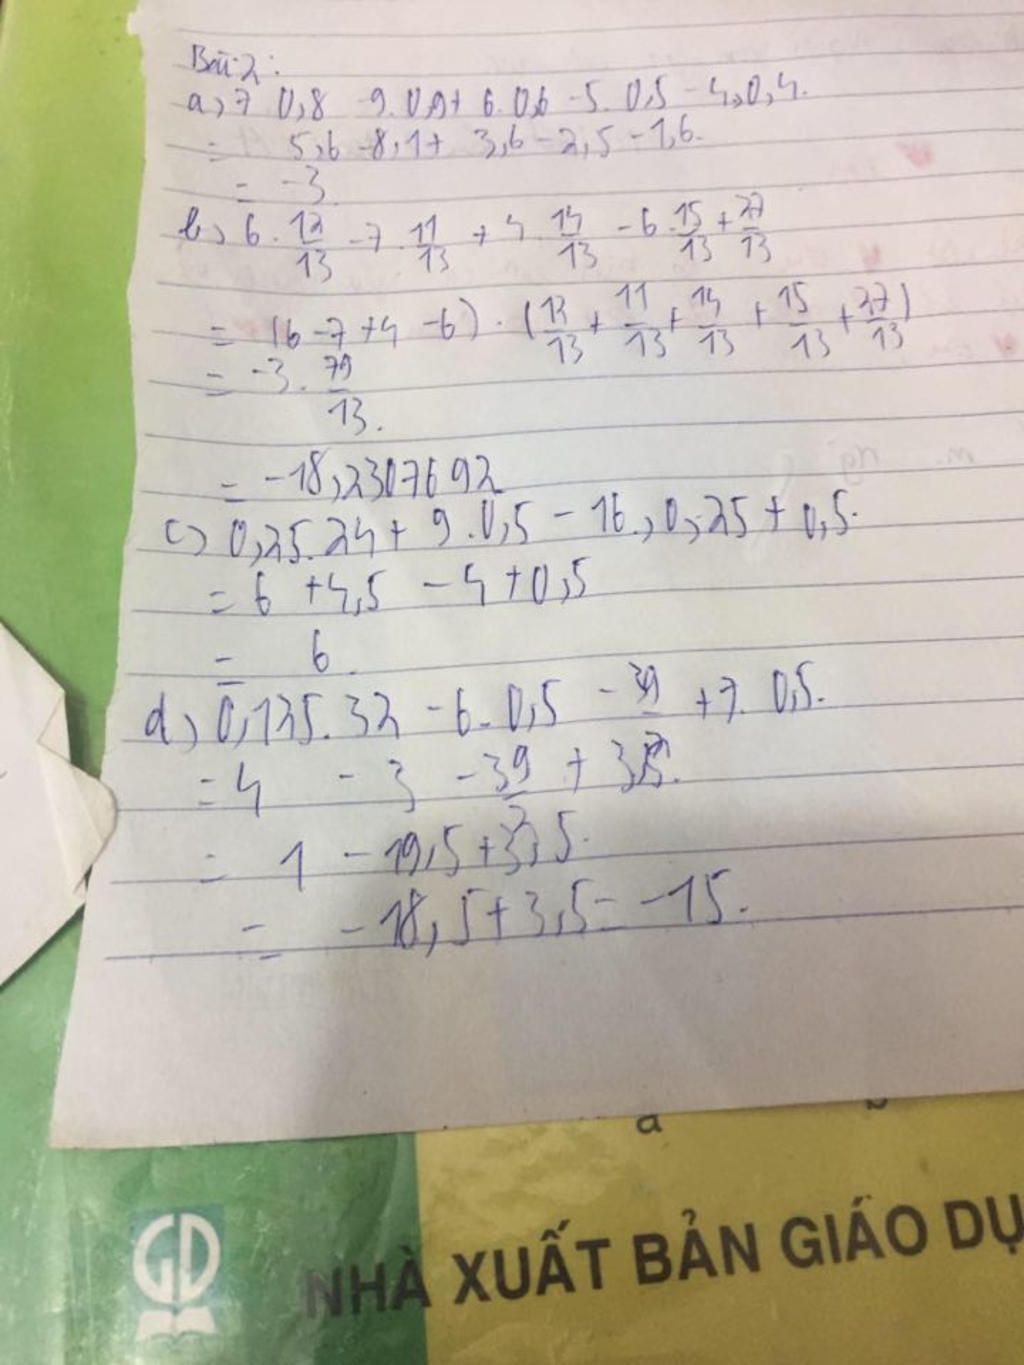 Bài 2:
a) 7. 0,8 - 9. 0,9 + 6. 0,6 - 5. 0,5 - 4,0,4.
= 5,6 - 8,1 + 3,6 - 2,5 - 1,6.
= -3.
b) 6. 12/13 - 7. 11/13 + 4. 14/13 - 6. 15/13 + 27/13
= (6 - 7 + 4 - 6) . (12/13 + 11/13 + 14/13 + 15/13 + 27/13)
= -3. 79/13.
= -18,2307692
c) 0,25. 24 + 9. 0,5 - 16, 0,25 + 0,5.
= 6 + 4,5 - 4 + 0,5
= 6.
d) 0,125. 32 - 6. 0,5 - 39 + 7. 0,5.
= 4 - 3 - 39/2 +
= 1 - 19,5 + 3,5.
= -18,5 + 3,5 = -15.
a
GD
NHÀ XUẤT BẢN GIÁO DỤ